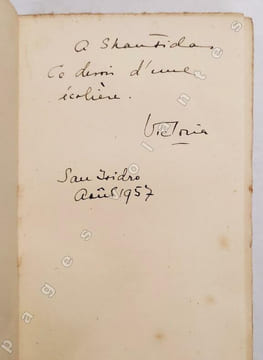 A Shantida
Ce devoir d'une
écolière.
Victoria
San Isidro
Août 1957